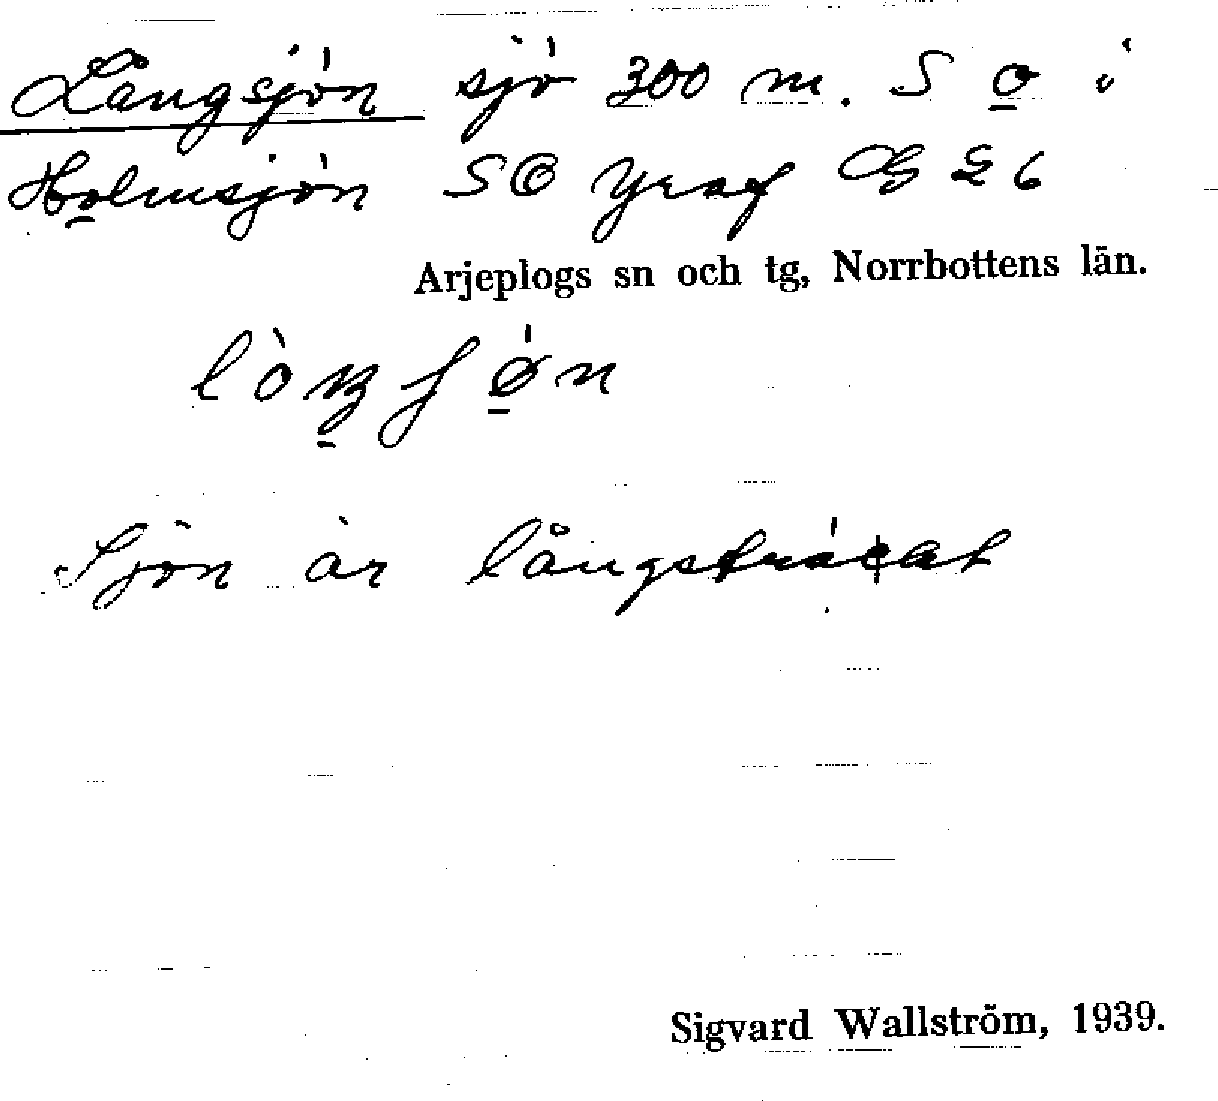 Långsjön sjö 300 m. S o i
Holmsjön SO Yraf G 26
Arjeplogs sn och tg, Norrbottens län.
Sjön är långsträckt
Sigvard Wallström, 1939.